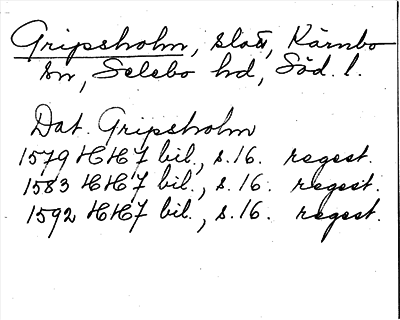 Gripsholm, slott, Kärnbo
sn, Selebo hd, Söd. l.
Dat. Gripsholm
1579 HH7 bil., s. 16. regest.
1583 HH7 bil., s. 16. regest.
1592 HH7 bil., s. 16. regest.